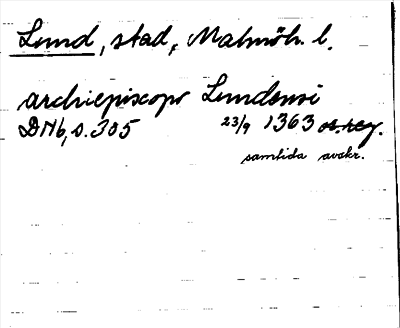 Lund, stad, Malmöh. l.
archiepiscopo Lundensi
DN6, s. 305 23/9 1363 or. reg.
samtida avskr.